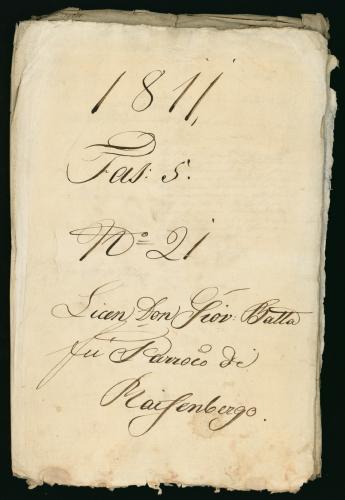 1811,
Fas: 5.
No= 21
Licen Don Giov: Batta
fu Parroco di
Raifenbergo.